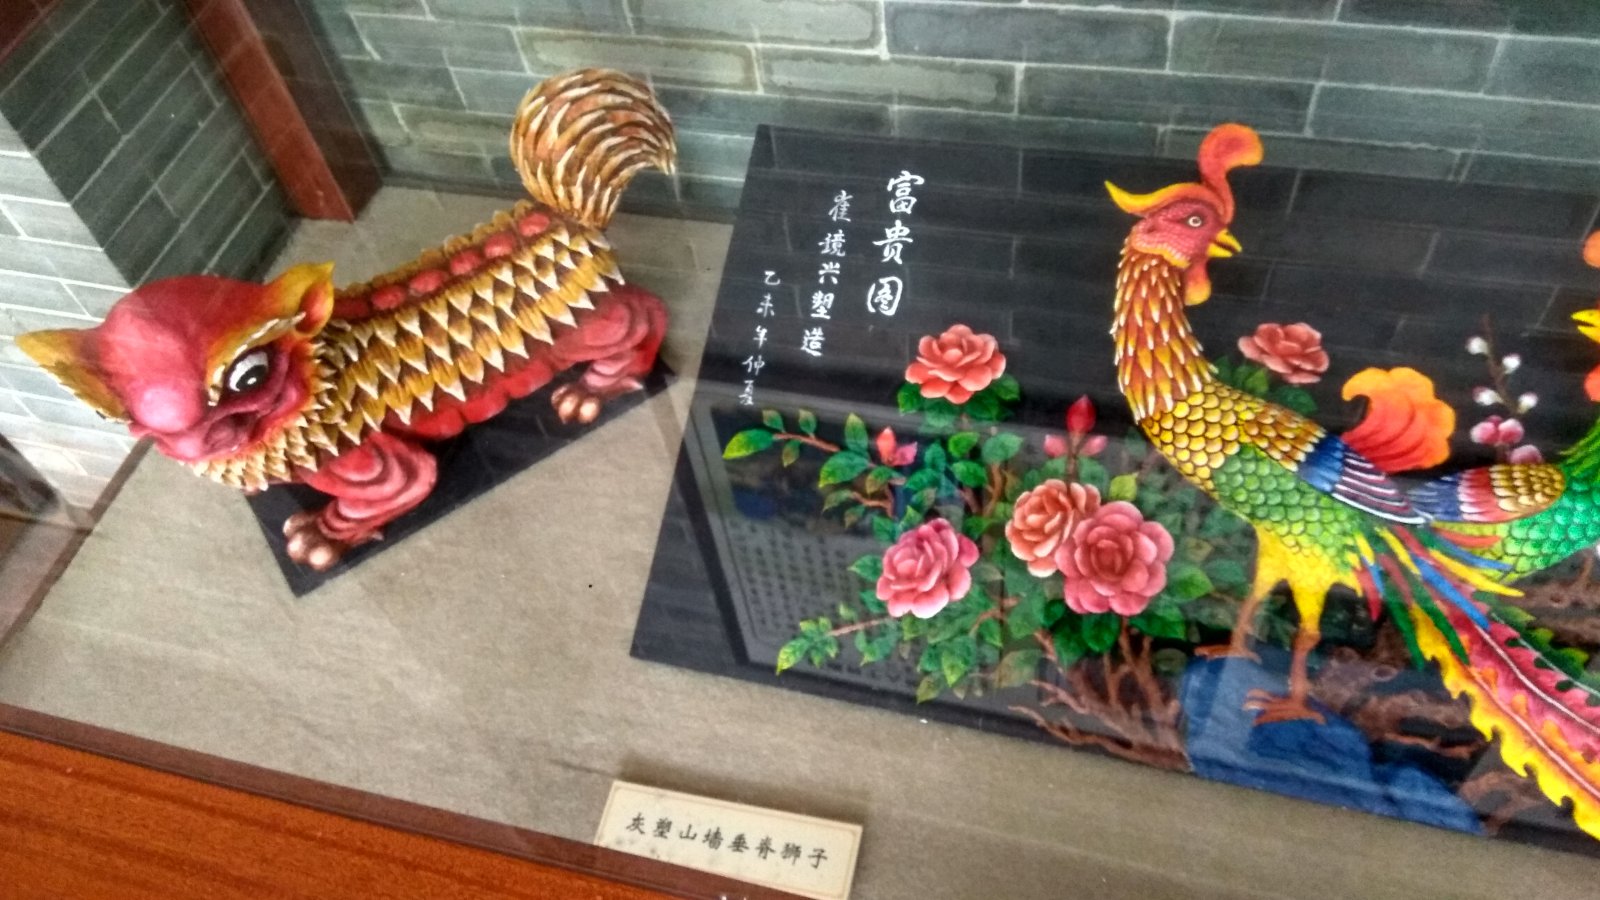 富贵图
崔镜兴塑造
乙未年仲夏
灰塑山墙垂脊狮子